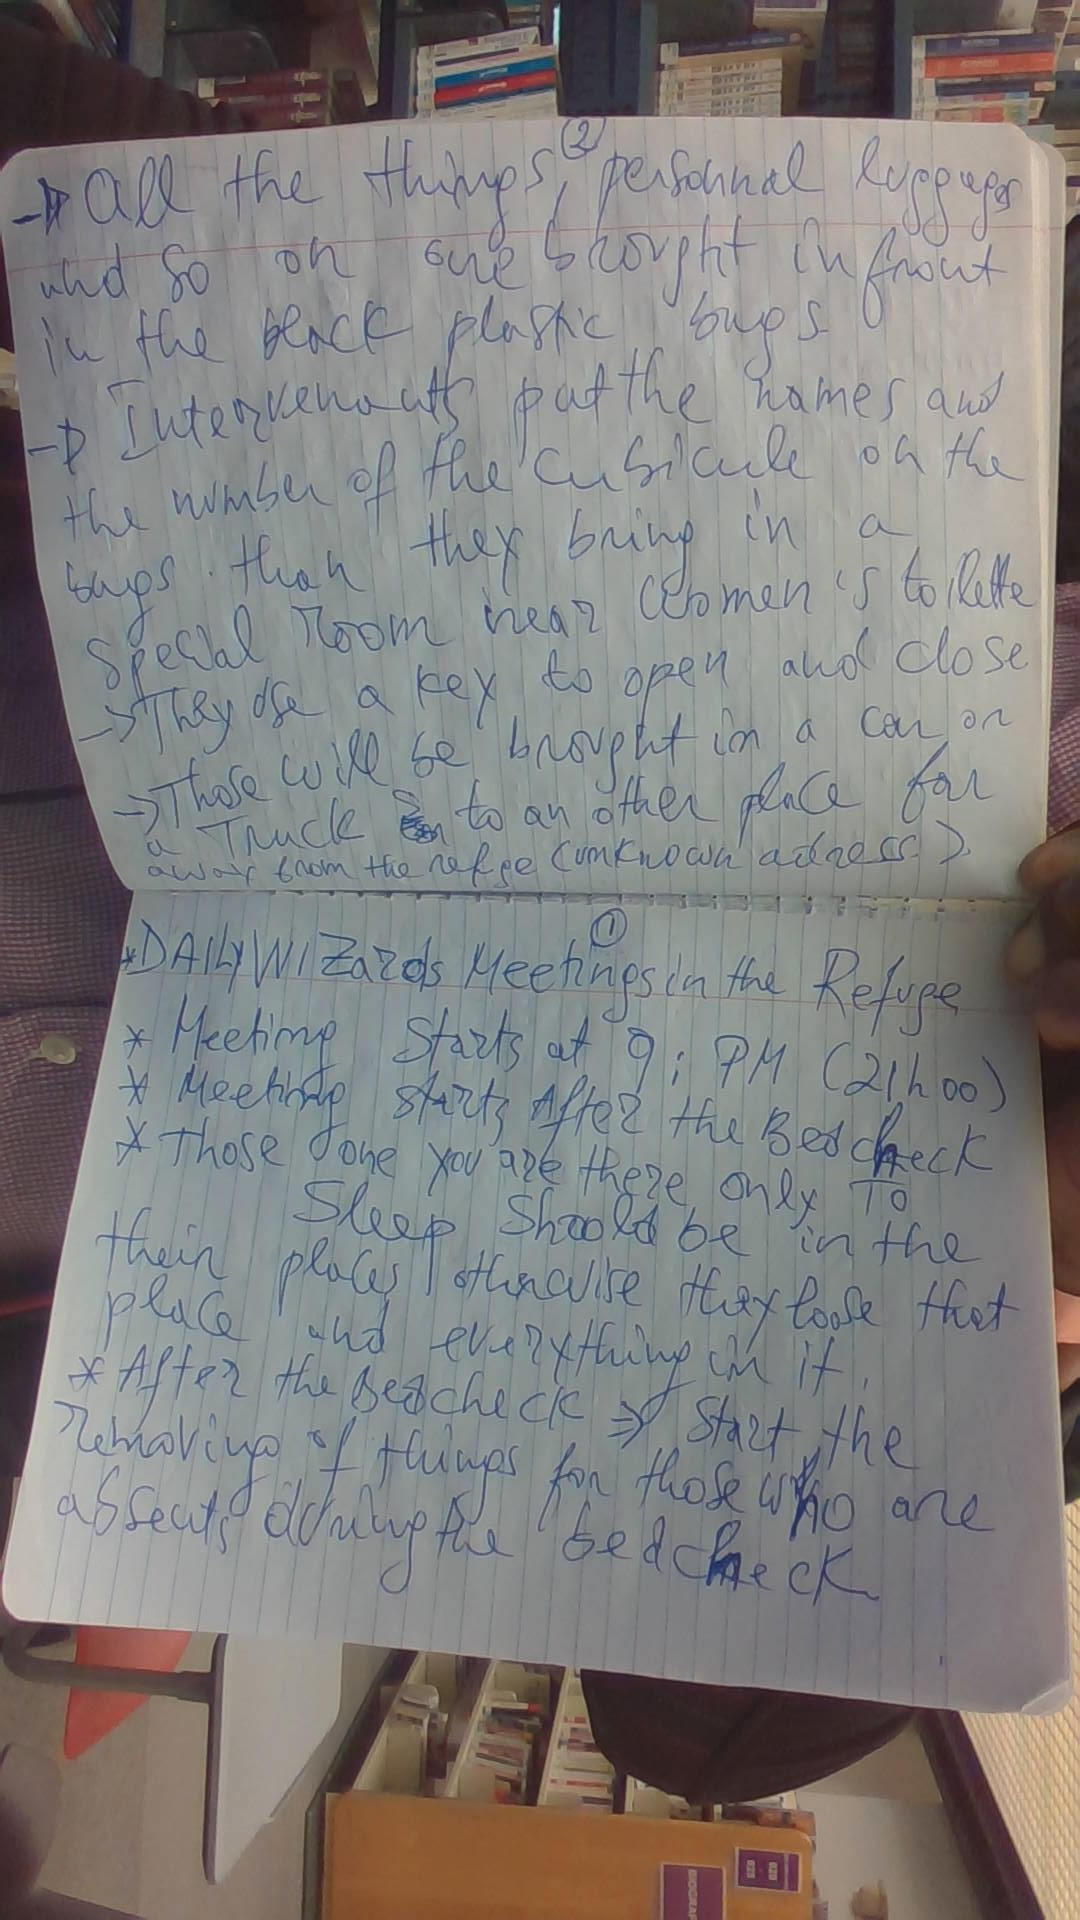 ②
→ All the things, personnal luggages
and so on are brought in front
in the black plastic bags
→ Intervenants put the names and
the number of the cubicule on the
bags. than they bring in a
special room near women's toilette
→ They use a key to open and close
→ Those will be brought in a car or
a Truck to an other place far
away from the refge (unknown adress)
①
*DAILY WIZards Meetings in the Refuge
* Meeting Starts at 9: PM (21h00)
* Meeting starts After the Bed check
* Those one you are there only To
Sleep Should be in the
their places otherwise they loose that
place and everything in it.
* After the Bed check ⇒ Start the
Removing of things for those who are
absents during the bed check
BIOGRAP